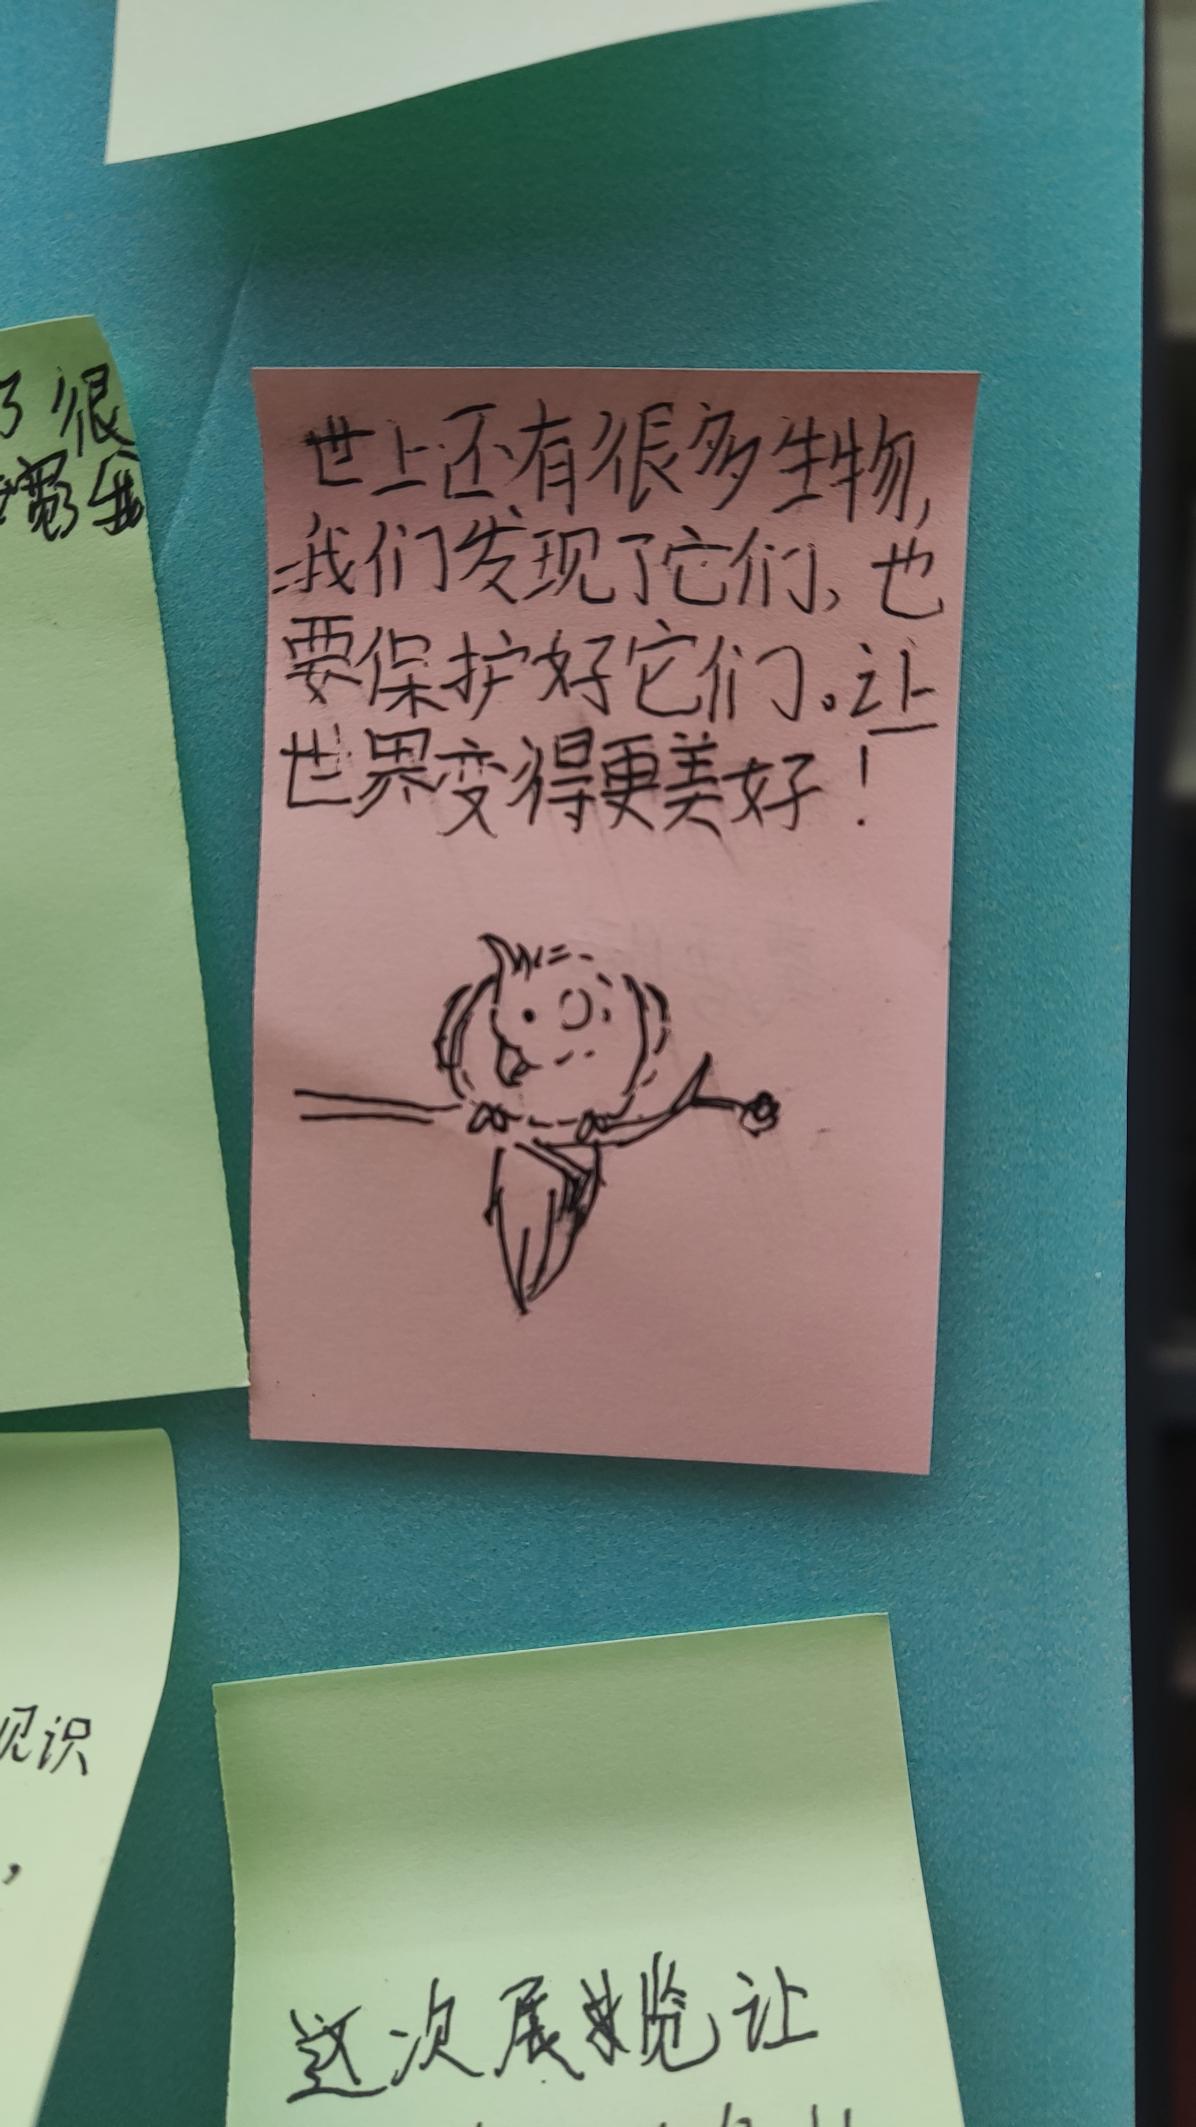 了很
世上还有很多生物,
我们发现了它们,也
要保护好它们。让
世界变得更美好!
识
,
这次展览让